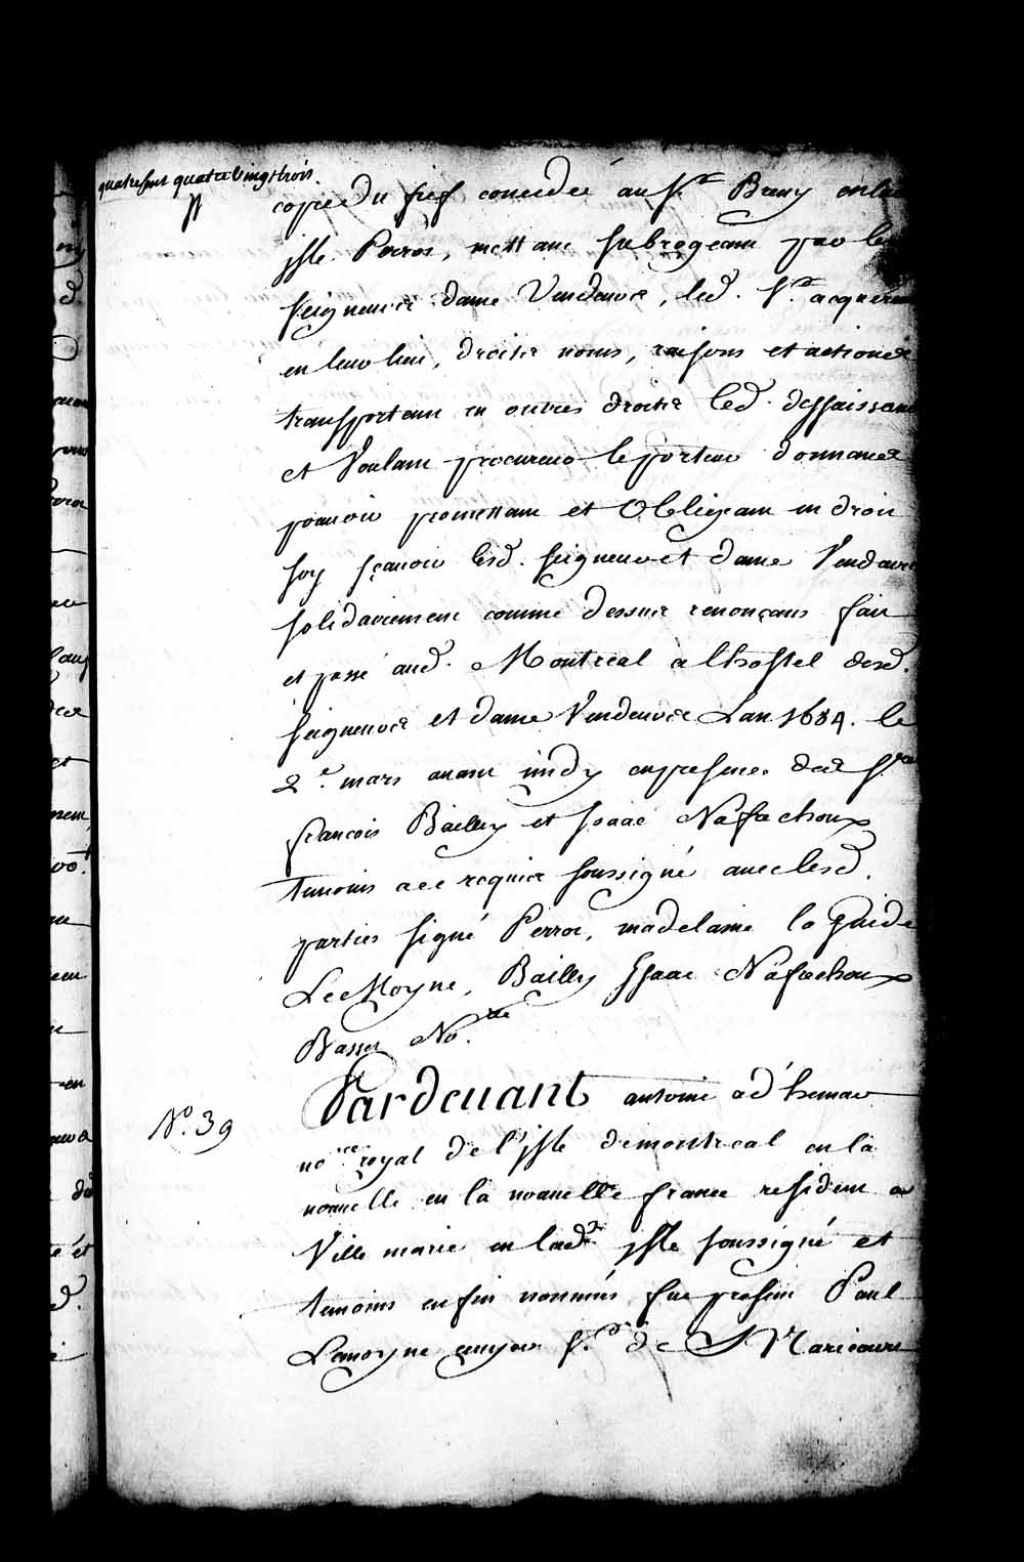 quatre cent quatre vingt trois
copie du fief concedée au Sr. Brucy en lad
isle Perrot, mettant subrogeant par les
seigneur et dame Vendeurs, led. Sr. acquereur
en leur lieu, droits noms, raisons et actions
transportant en outres droits led. dessaissant
et Voulant procureur le porteur donnant
pouvoir promettant et Obligeant en droit
soy sçavoir lesd. seigneur et dame Vendeurs
solidairement comme dessus renonçant fait
et passé aud. Montreal a lhostel desd.
seigneurs et dame Vendeurs Lan 1684. le
2e. mars avant midy en presence des Srs
francois Bailly et Isaac Nafrechoux
temoins a ce requis soussigné avec lesd.
parties signé Perrot, madelaine la Guide
Le Moyne, Bailly Isaac Nafrechoux
Basset No.re
Pardevant antoine ad'hemar
No. 39
no.re royal de l'isle de montreal en la
nouvelle en la nouvelle france resident a
Ville marie en lad. isle soussigné et
temoins en fin nommés fut present Paul
Lemoyne ecuyer Sr. de Maricourt